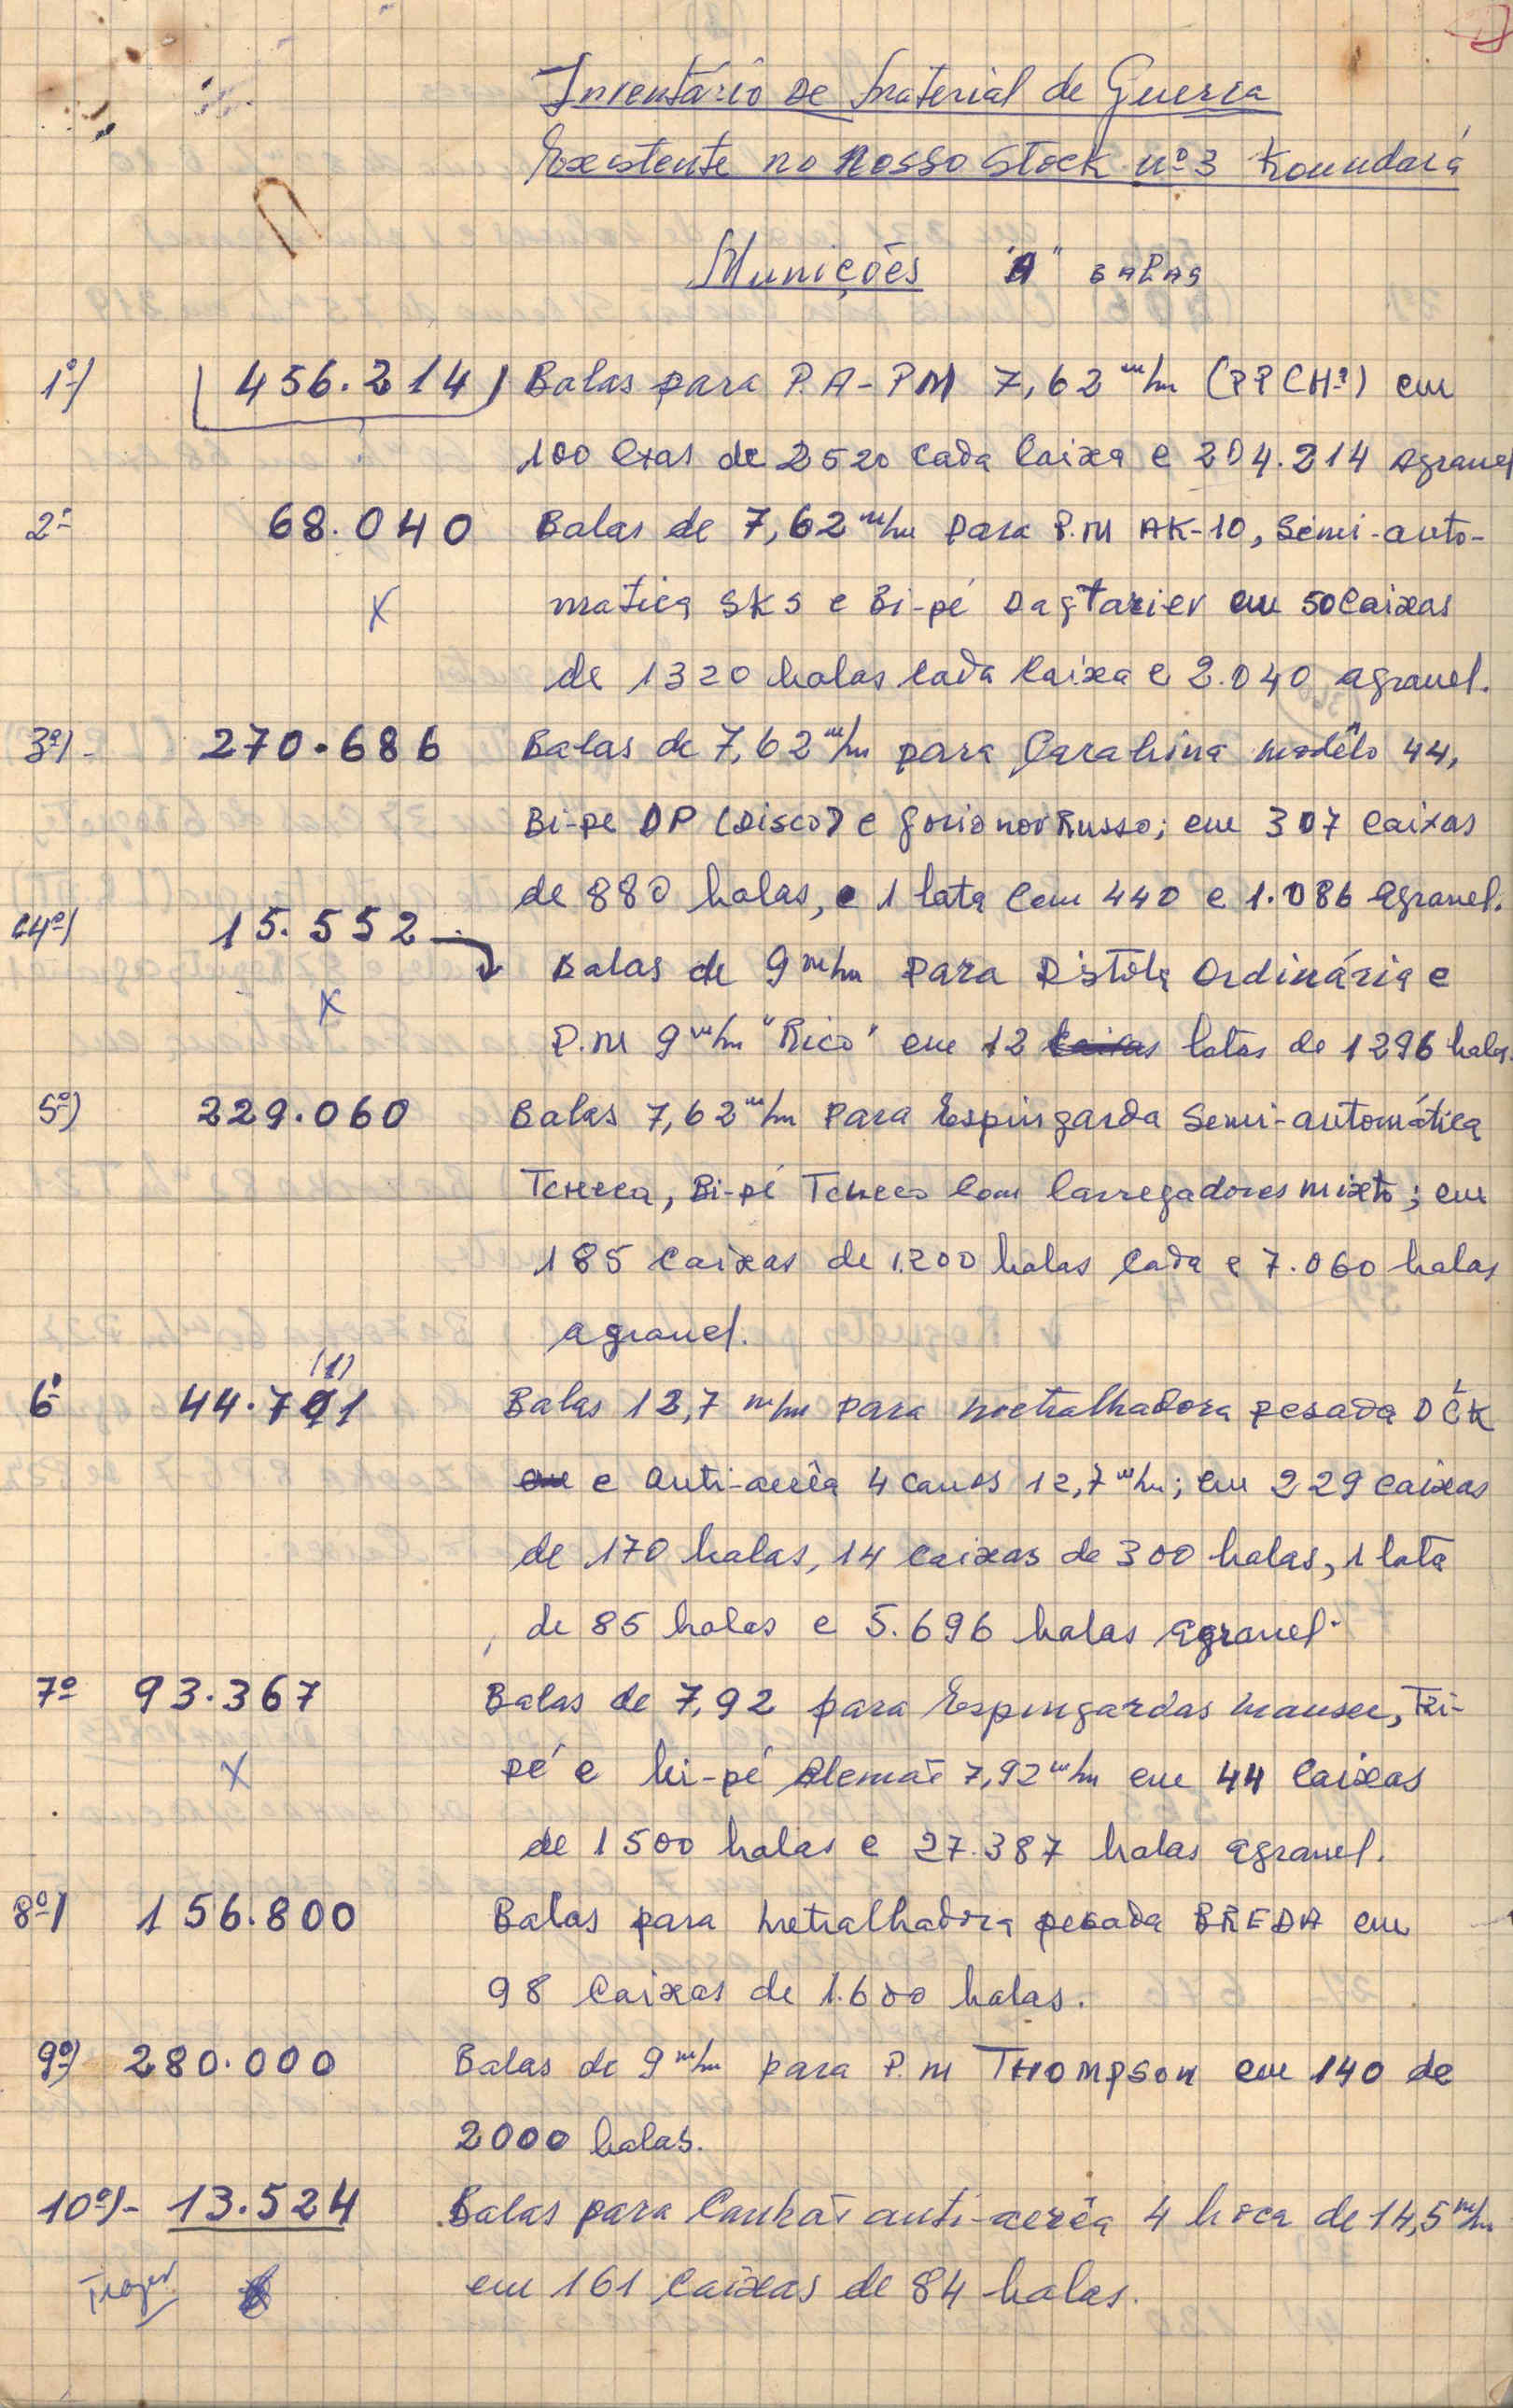 Inventário de Material de Guerra
Existente no Nosso Stock nº 3 Koundará
Munições "A" BALAS
1º) 456.214 Balas para P.A-PM 7,62 m/m (PPCHª) em
100 cxas de 2520 cada caixa e 204.214 agranel
2º 68.040 Balas de 7,62 m/m para P.M AK-10, Semi-auto-
X matica SKS e Bi-pé Dagtariev em 50 caixas
de 1320 balas cada caixa e 2.040 agranel.
3º)- 270.686 Balas de 7,62 m/m para Carabina modêlo 44,
Bi-pe DP (Disco) e Gorionov Russo; em 307 caixas
de 880 balas, e 1 lata com 440 e 1.086 agranel.
4º) 15.552
Balas de 9 m/m para Pistóla Ordinária e
X P.M 9 m/m "Rico" em 12 caixas latas de 1296 balas.
5º) 229.060 Balas 7,62 m/m Para Espingarda Semi-automática
Tcheca, Bi-pé Tcheco com Carregadores mixto; em
185 caixas de 1.200 balas cada e 7.060 balas
agranel.
(1)
6º 44.791 Balas 12,7 m/m para metralhadora pesada DCK
e anti-aerêa 4 canos 12,7 m/m; em 229 caixas
de 170 balas, 14 caixas de 300 balas, 1 lata
de 85 balas e 5.696 balas agranel.
7º 93.367 Balas de 7,92 para Espingardas mauser, Tri-
X pé e bi-pé Alemão 7,92 m/m em 44 caixas
de 1500 balas e 27.387 balas agranel.
8º) 156.800 Balas para metralhadora pesada BREDA em
98 caixas de 1.600 balas.
9º) 280.000 Balas de 9 m/m para P.M THOMPSON em 140 de
2000 balas.
10º)- 13.524 Balas para Canhão anti-aerêa 4 boca de 14,5 m/m
em 161 caixas de 84 balas.